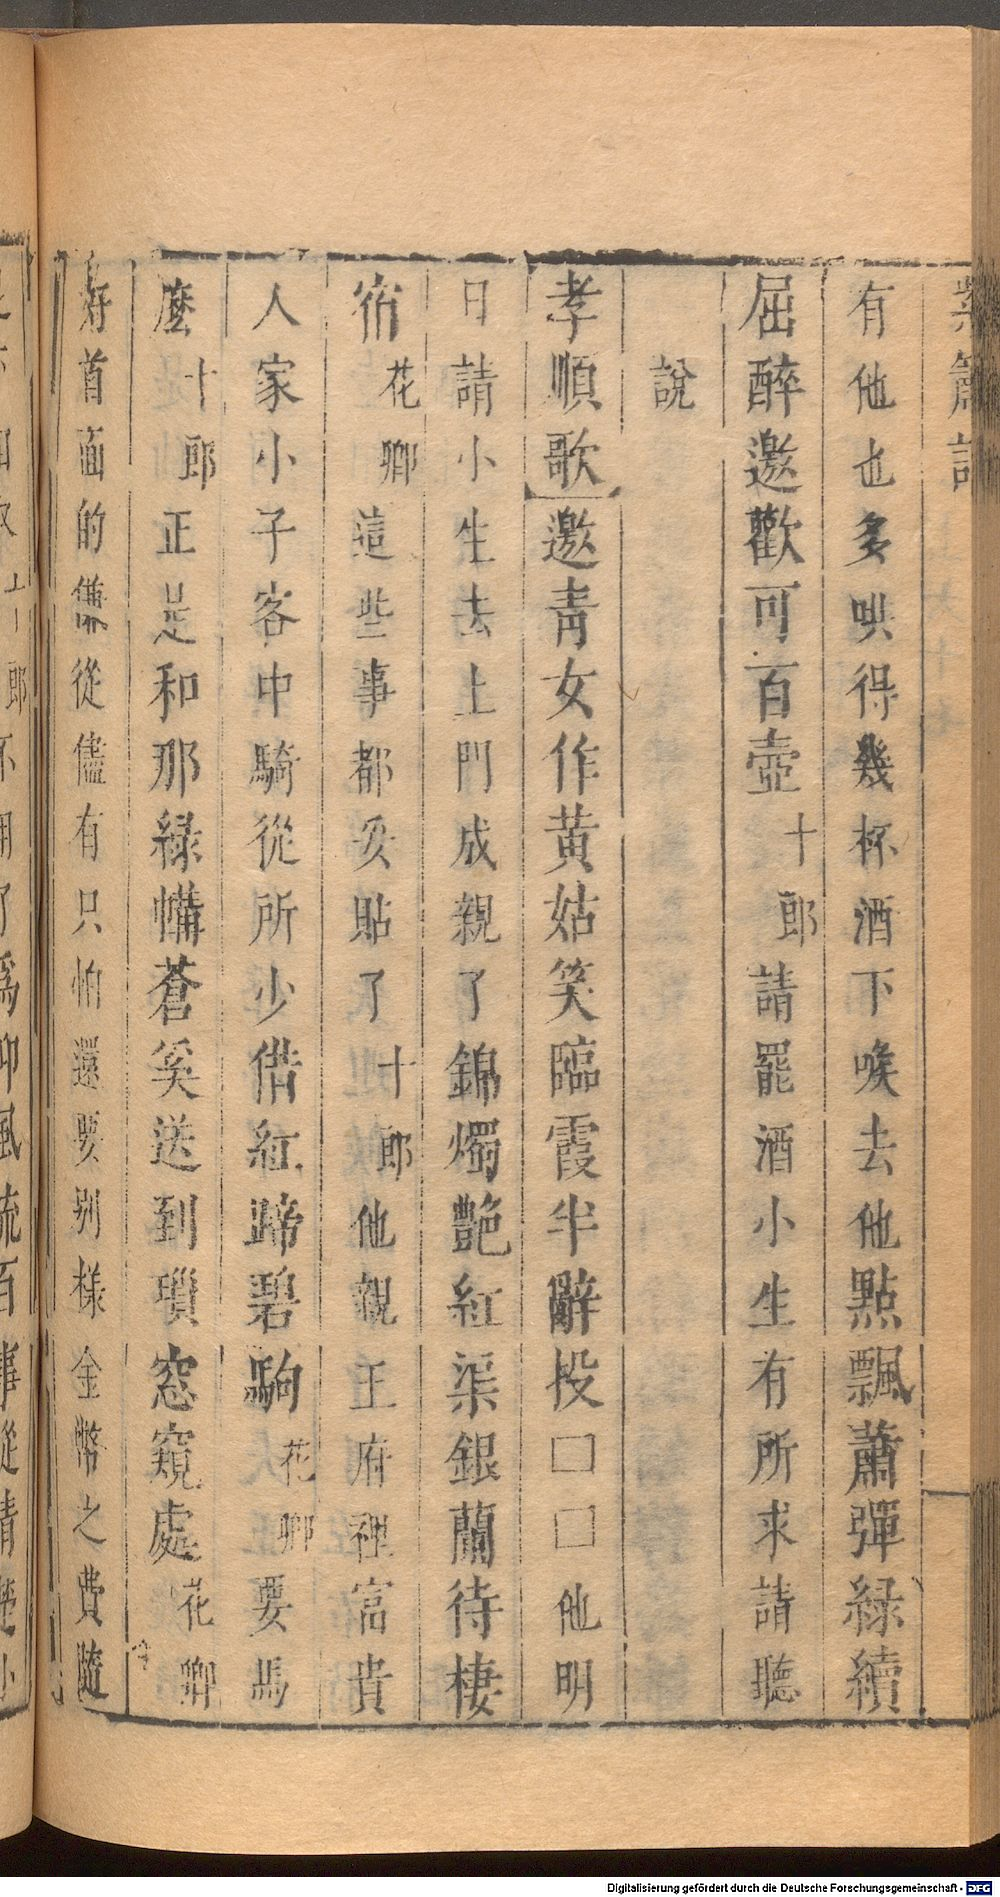 紫簫記
有他也多哄得幾杯酒下喉去他點飄蕭彈緑續
屈醉邀歡可百壺十郎請罷酒小生有所求請聽
說
孝順歌邀青女作黄姑笑臨霞半辭投□□他明
日請小生去上門成親了錦燭艶紅渠銀蘭待棲
宿花卿這些事都妥貼了十郎他親王府裡富貴
人家小子客中騎從所少偕紅蹄碧駒花卿要馬
麼十郎正是和那緑幘蒼奚送到瑣窓窺處花卿
好首面的傔從儘有只怕還要别樣金幣之費隨
Digitalisierung gefördert durch die Deutsche Forschungsgemeinschaft - DFG